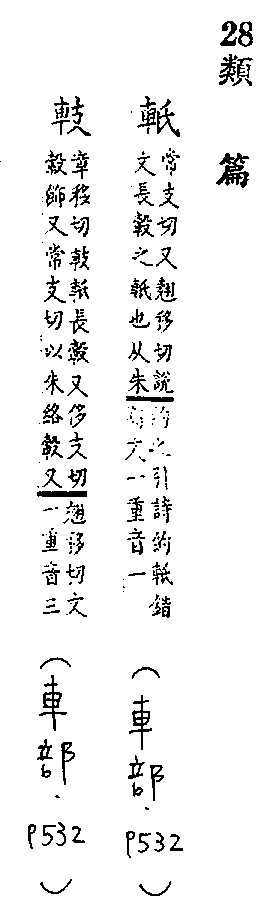 28類篇
軝
常支切又翹移切說
文長轂之軝也从朱
約之引詩約軝錯
文一重音一
(車部.P532)
䡋
章移切䡋軝長轂又侈支切
轂飾又常支切以朱絡轂又
翹移切文
一重音三
(車部.P532)